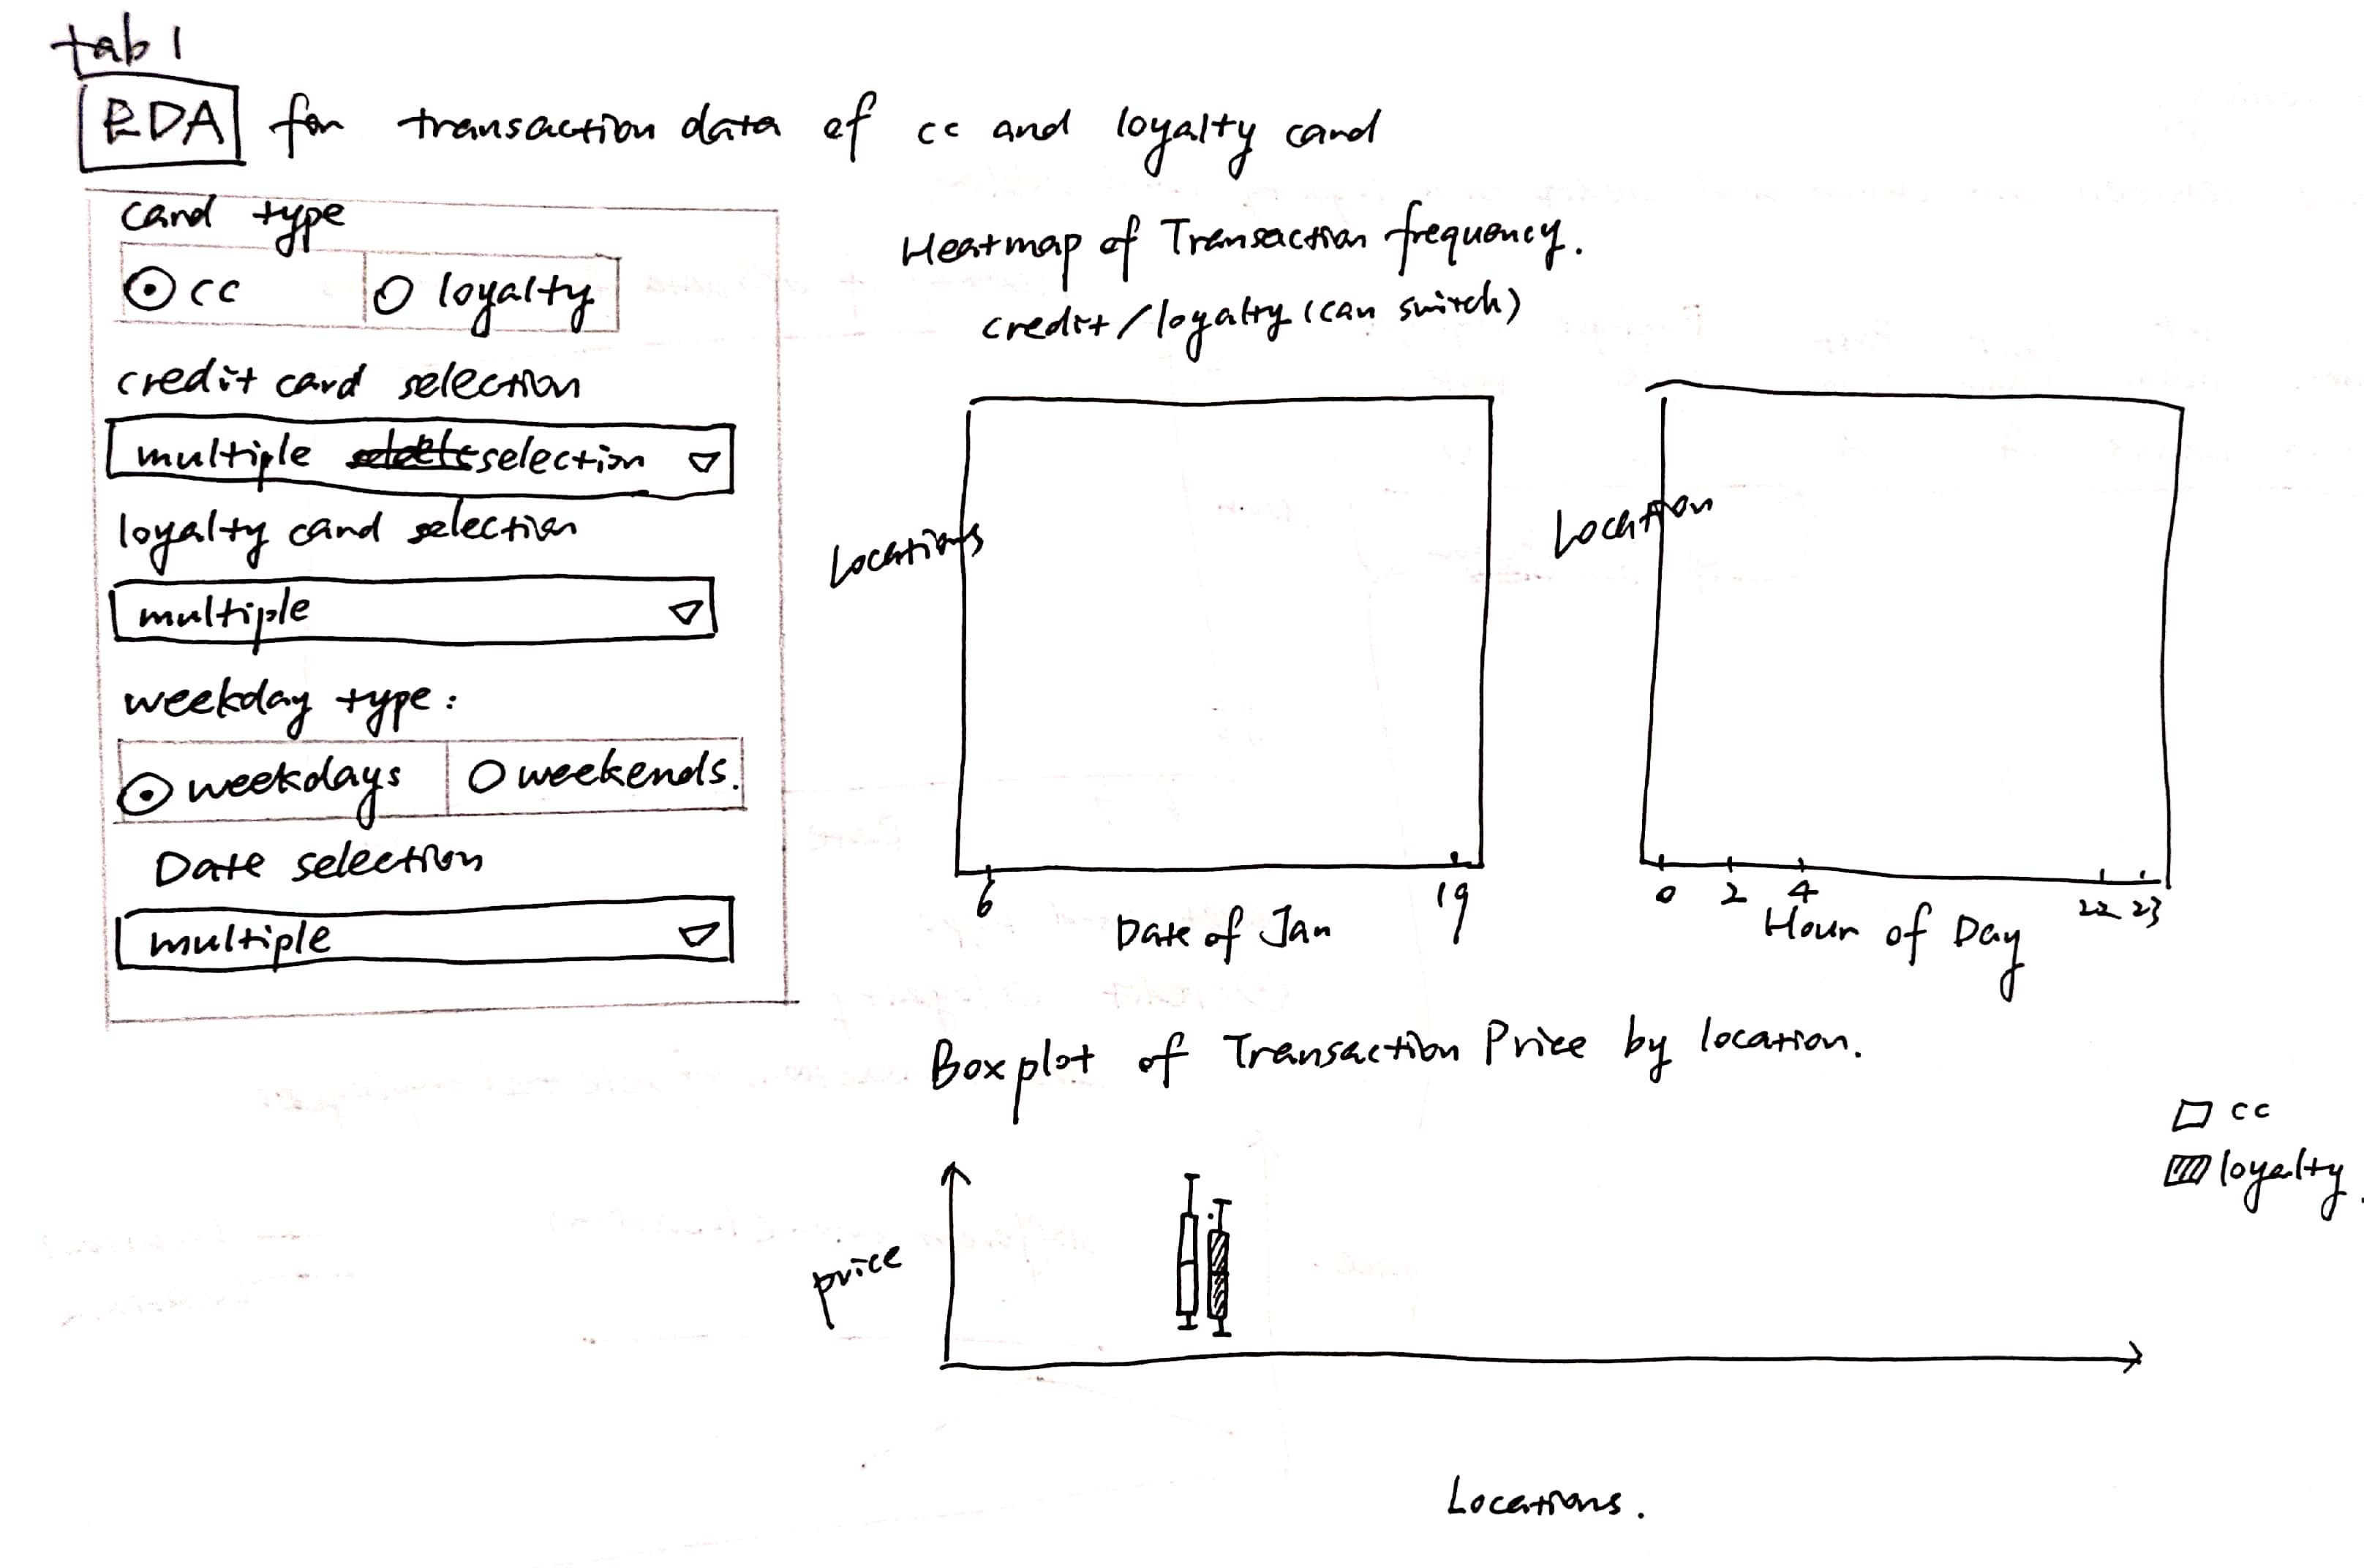 tab 1
EDA for transaction data of cc and loyalty card
card type
cc loyalty
credit card selection
multiple selection
loyalty card selection
multiple
weekday type:
weekdays weekends.
Date selection
multiple
Heatmap of Transaction frequency.
credit/loyalty (can switch)
Locations
6 19
Date of Jan
Location
0 2 4 22 23
Hour of Day
Boxplot of Transaction Price by location.
cc
loyalty.
price
Locations.